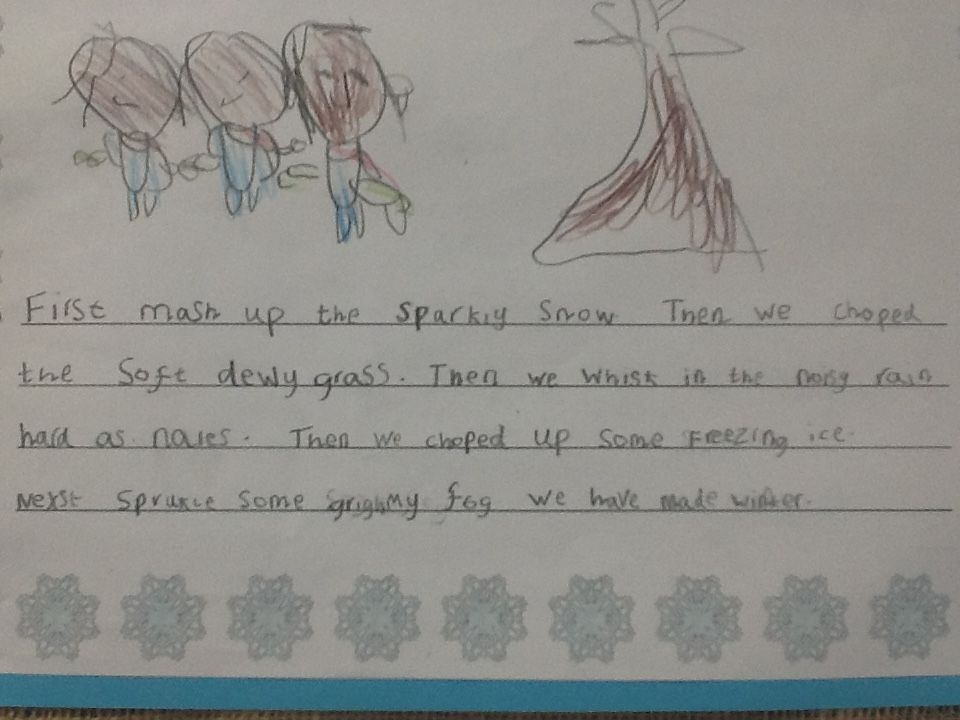 First mash up the sparkly snow Then we choped
the soft dewy grass. Then we whisk in the noisy rain
hard as nales. Then we choped up some freezing ice.
Nexst sprukle some grighmy fog we have made winter.